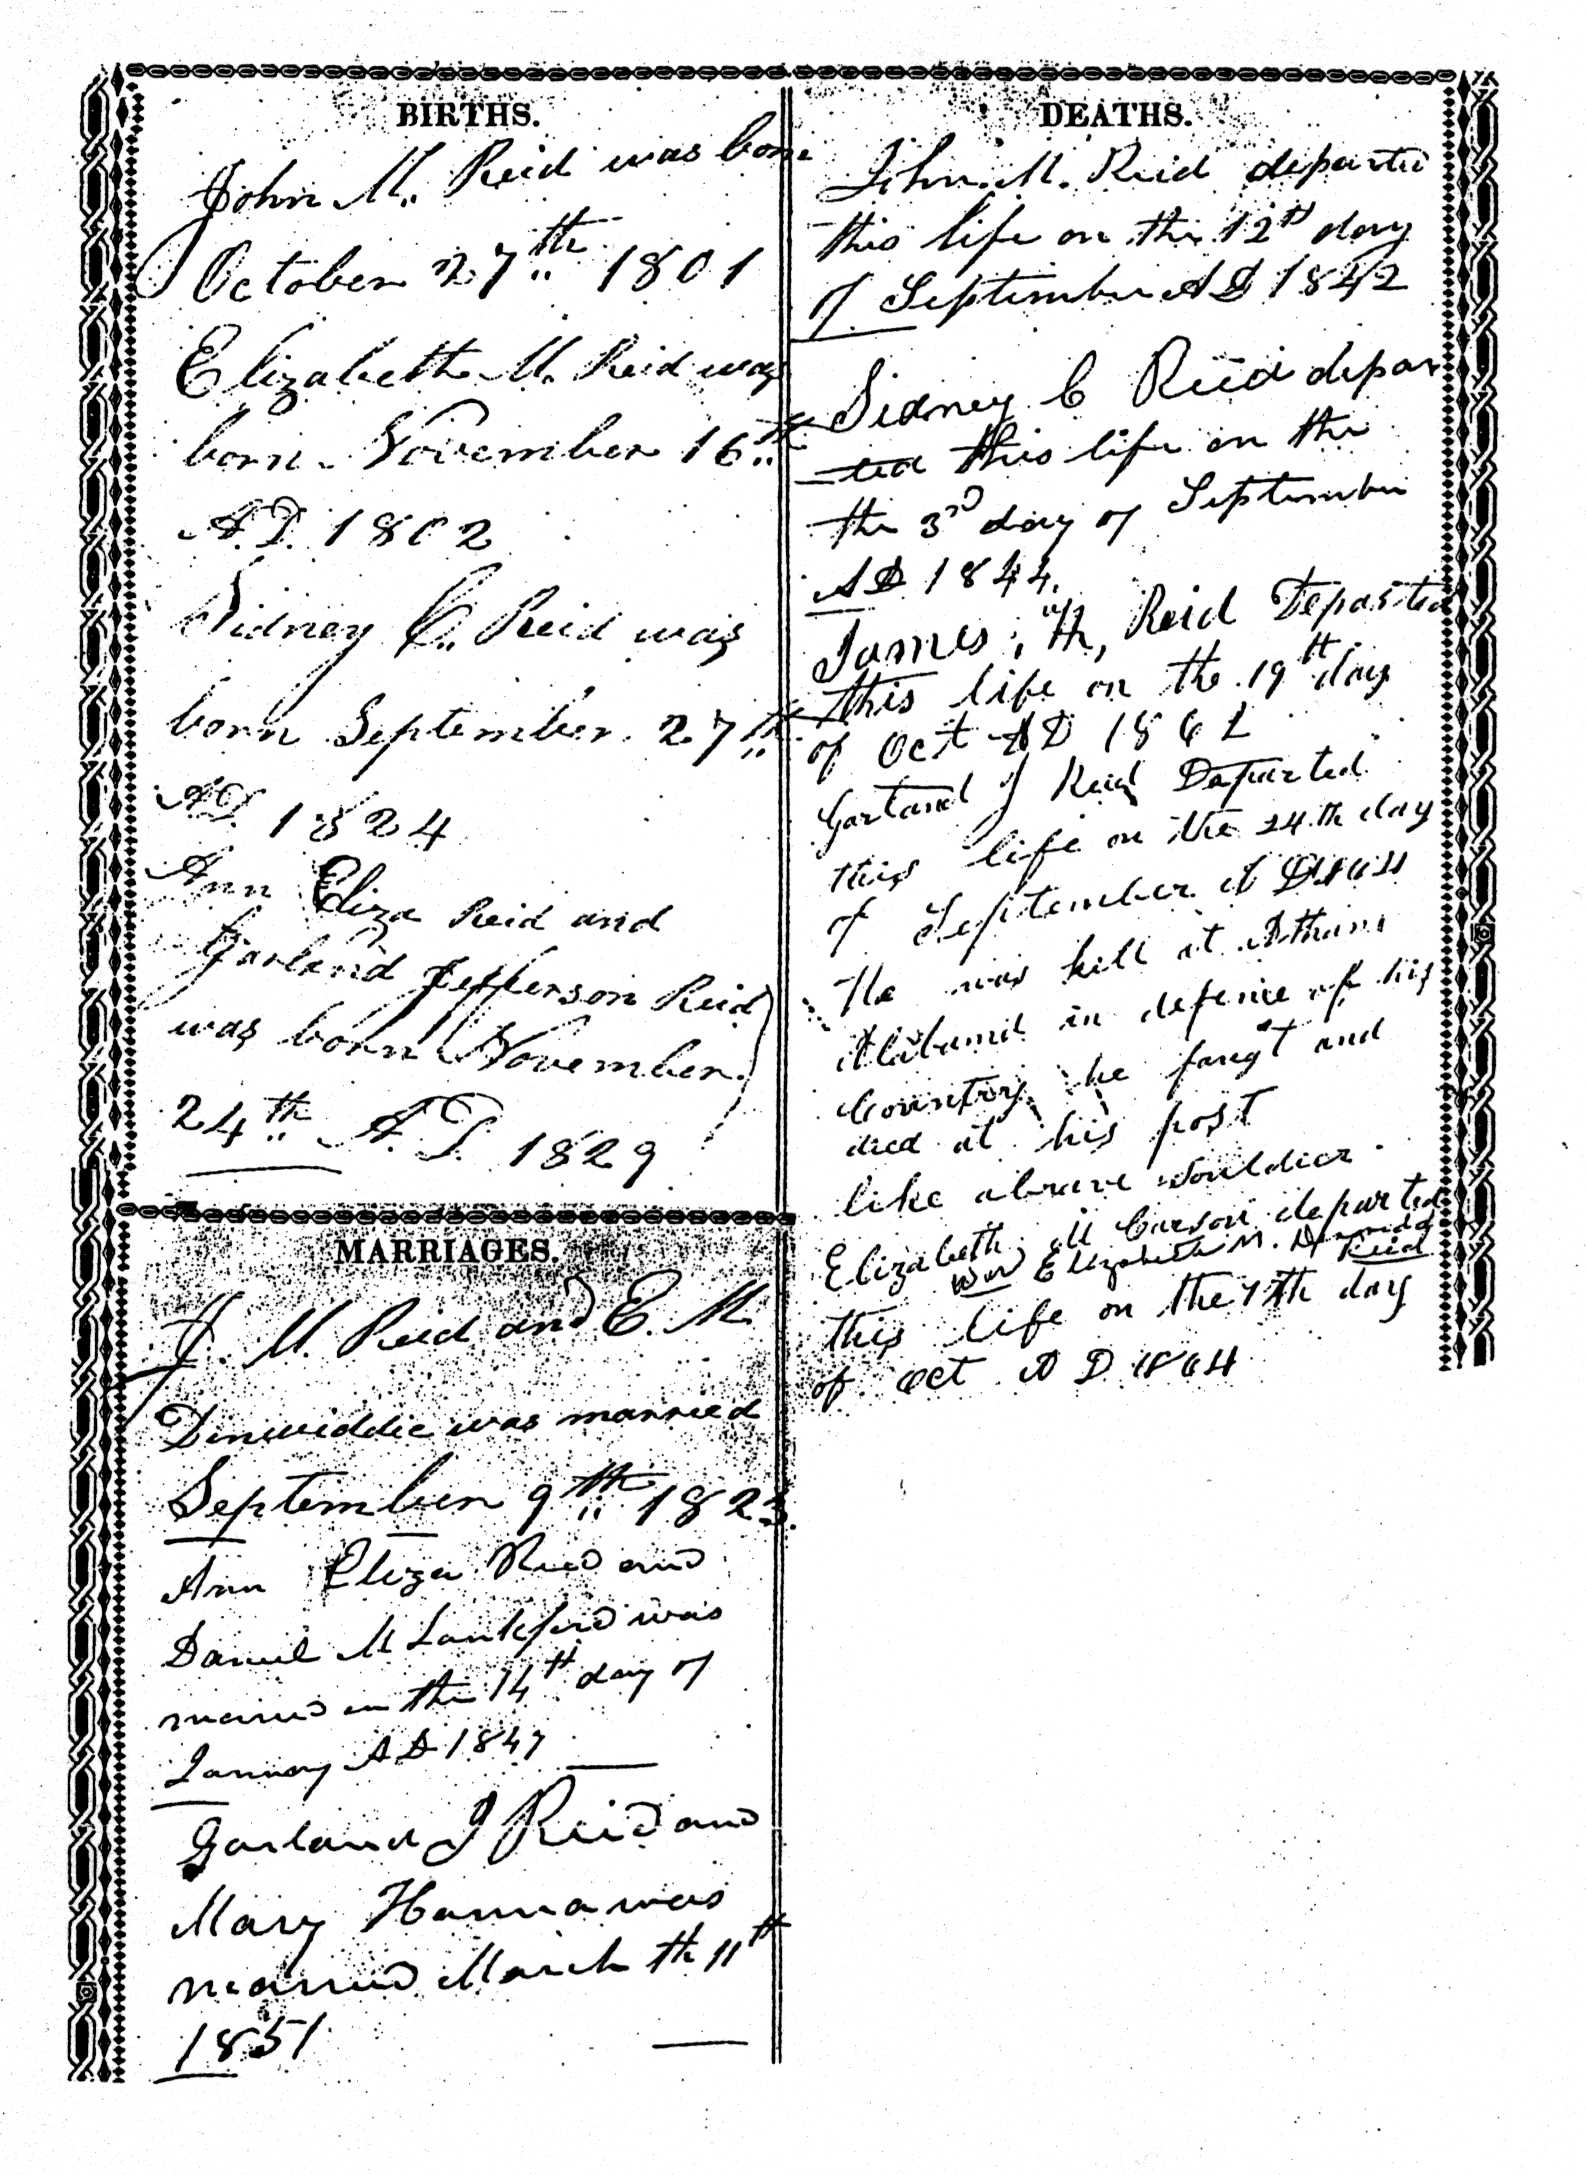 BIRTHS.
John M. Reid was born
October 27th 1801
Elizabeth M. Reid was
born November 16th
A.D. 1802
Sidney C. Reid was
born September 27th
A.D. 1824
Ann Eliza Reid and
Garland Jefferson Reid
was born November
24th A.D. 1829
MARRIAGES.
J. M. Reid and E. M.
Dinwiddie was married
September 9th 1823.
Ann Eliza Reid and
Daniel M Lankford was
married on the 14th day of
January AD 1847
Garland J Reid and
Mary Hanna was
married March th 11th
1851
DEATHS.
John M. Reid departed
this life on the 12th day
of September AD 1842
Sidney C Reid depar
ted this life on the
the 3rd day of September
AD 1844.
James, H, Reid Departed
this life on the 19th day
of Oct AD 186
Garland J Reid Departed
this life on the 24th day
of September A D 1864
He was kill at Athans
Alabama in defence of his
Country he faugt and
died at his post
like a brave souldier.
Elizabeth M Carson departed
Elizabeth M. Reid
this life on the 7th day
of Oct A D 1864